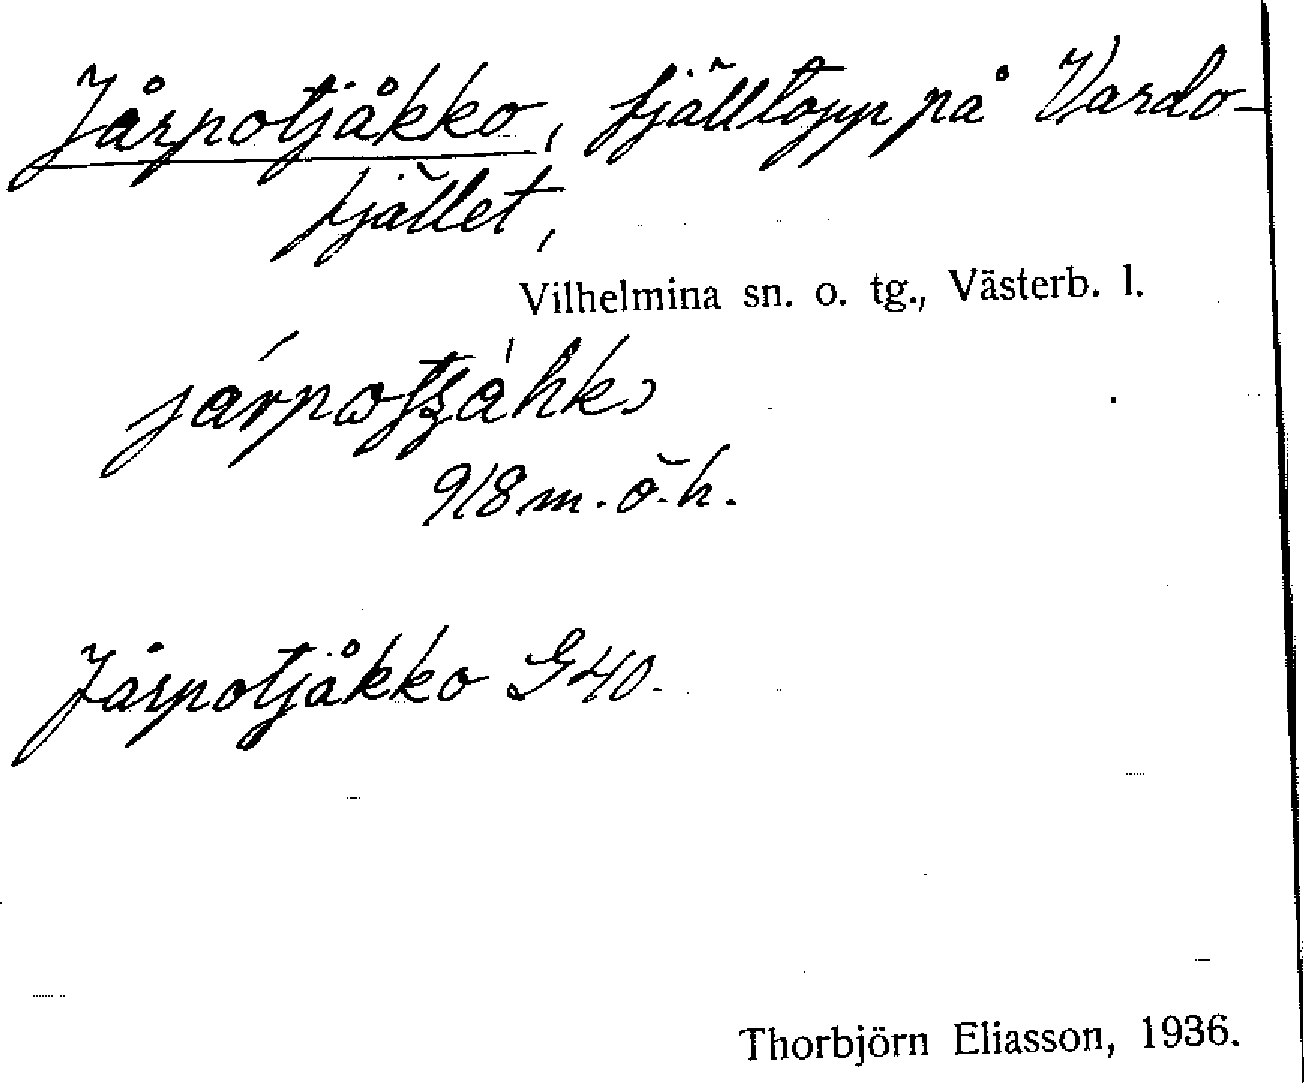 Jårpotjåkko, fjälltopp på Vardo-
fjället,
Vilhelmina sn. o. tg., Västerb. l.
918 m. ö. h.
Jårpotjåkko G40.
Thorbjörn Eliasson, 1936.